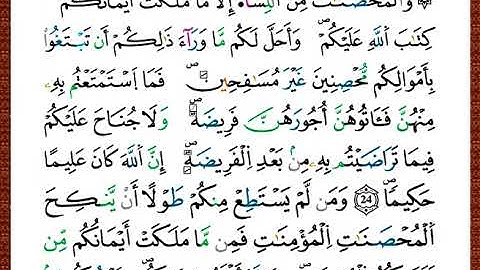 وَالْمُحْصَنَٰتُ مِنَ اَلنِّسَآءِ الَّا مَا مَلَكَتَ اَيْمَٰنُكُمْ
كِتَٰبَ اَللَّهِ عَلَيْكُمْ وَأَحَلَّ لَكُم مَّا وَرَآءَ ذَٰلِكُمْ أَن تَبْتَغُواْ
بِأَمْوَٰلِكُم مُّحْصِنِينَ غَيْرَ مُسَٰفِحِينَ فَمَا اَسْتَمْتَعْتُم بِهِۦ
مِنْهُنَّ فَـَٔاتُوهُنَّ أُجُورَهُنَّ فَرِيضَةً وَلَا جُنَاحَ عَلَيْكُمْ
فِيمَا تَرَٰضَيْتُم بِهِۦ مِنۢ بَعْدِ اِلْفَرِيضَةِ إِنَّ اَللَّهَ كَانَ عَلِيمًا
حَكِيمًا 24 وَمَن لَّمْ يَسْتَطِعْ مِنكُمْ طَوْلًا أَنْ يَّنكِحَ
اَلْمُحْصَنَٰتِ اِلْمُؤْمِنَٰتِ فَمِن مَّا مَلَكَتْ أَيْمَٰنُكُم مِّن